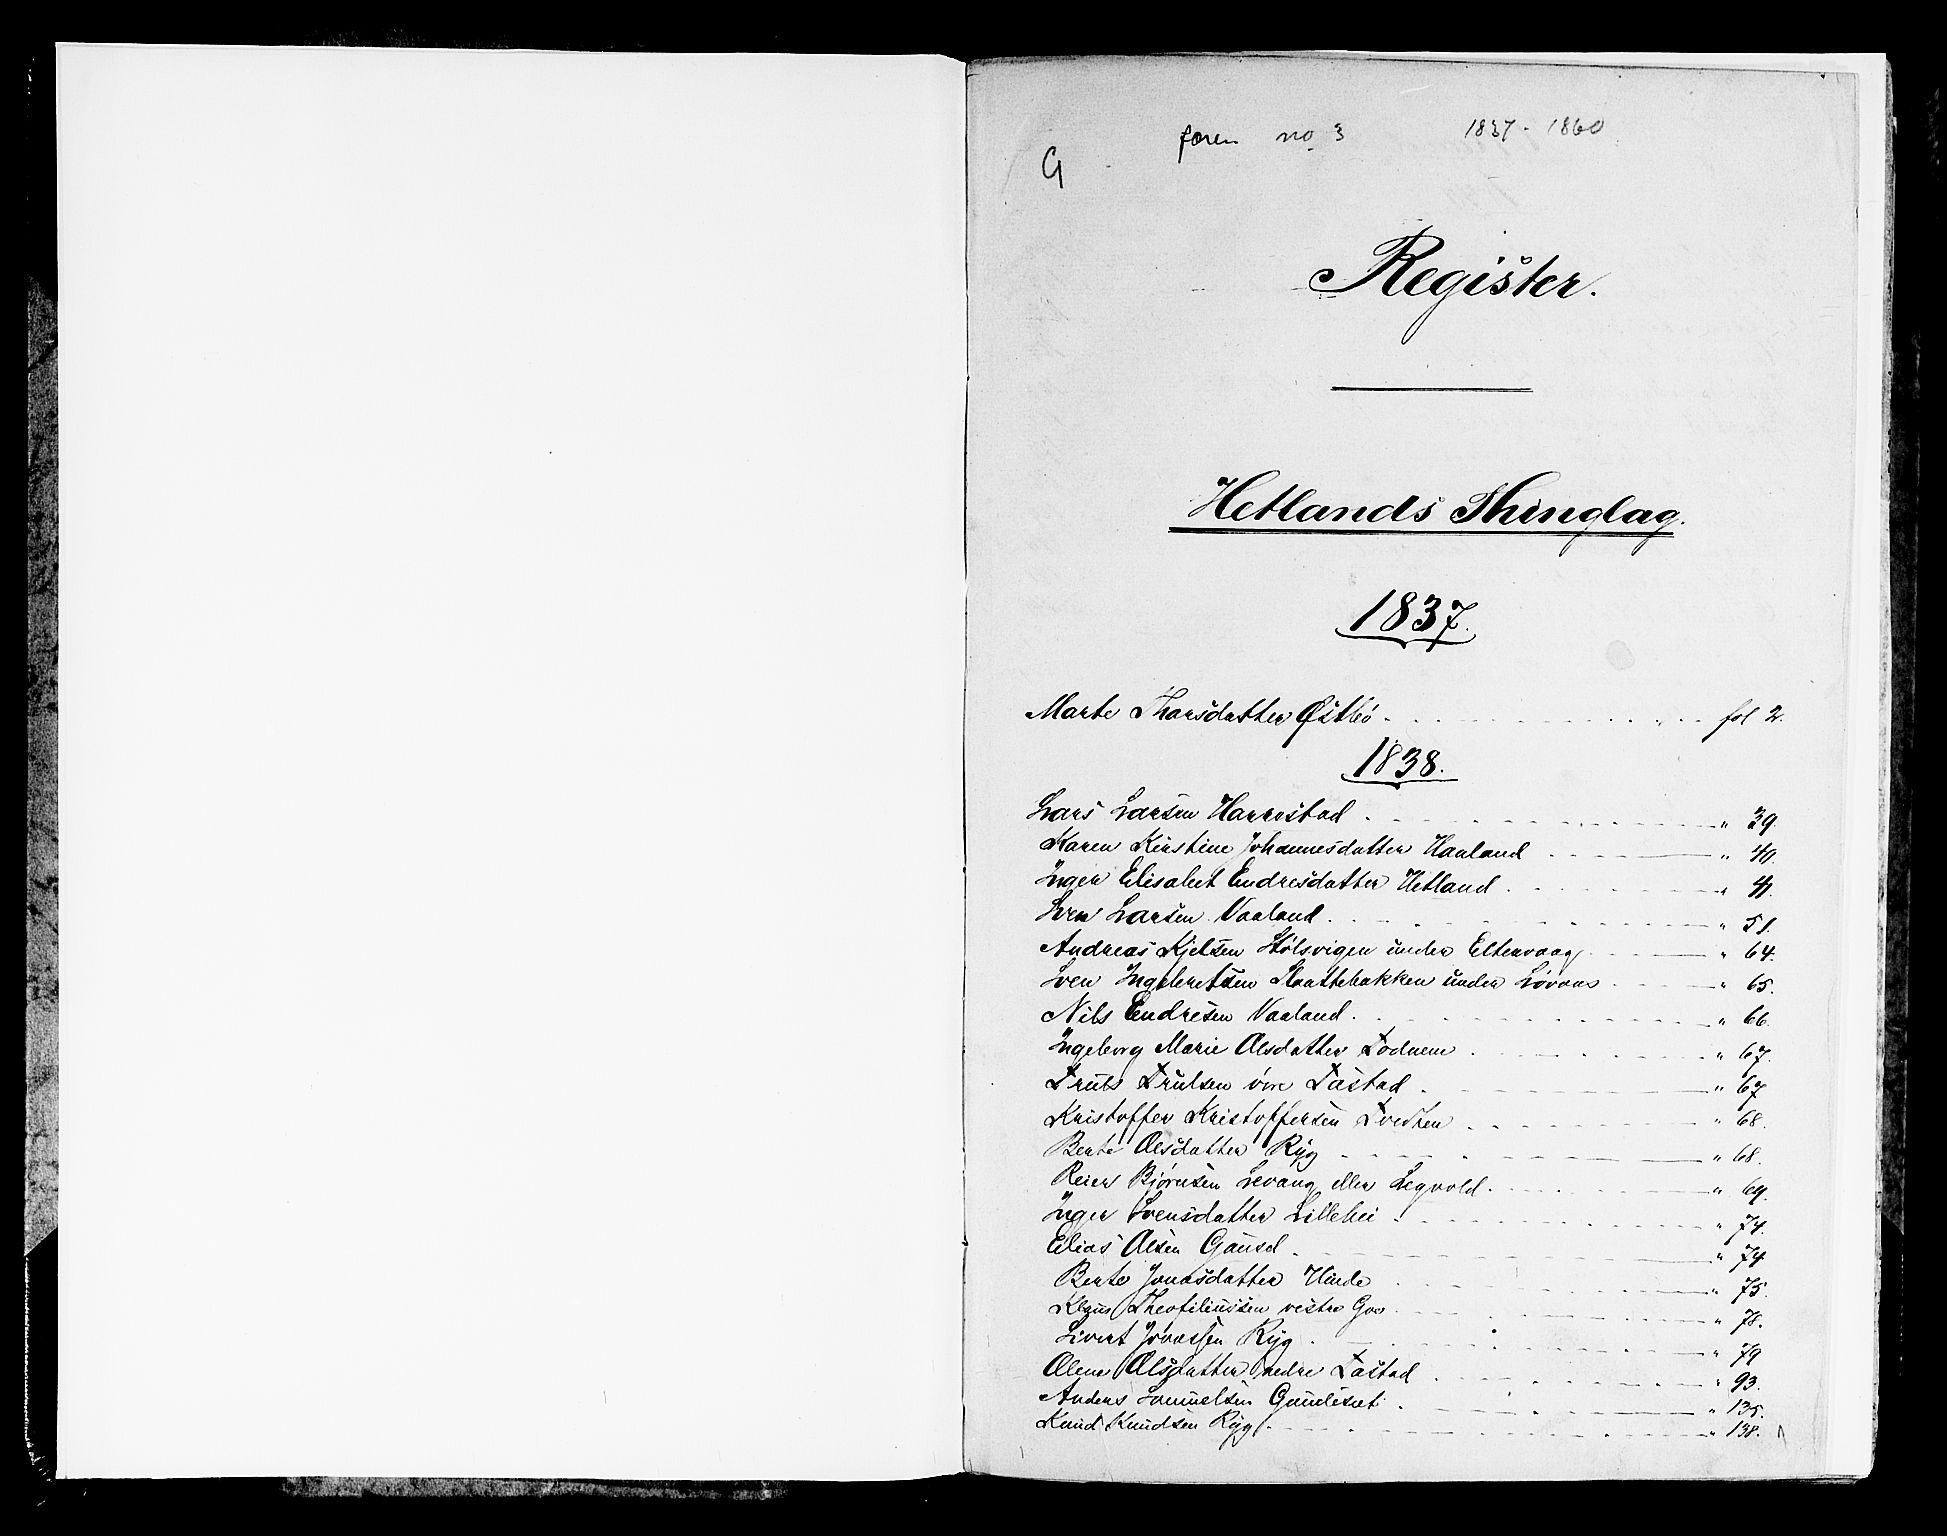 G
foren no 3 1837-1860
Register.
Hetlands Thinglag.
1837.
Marte Tharsdatter Østbø fol 2.
1838.
Lars Larsen Harrestad " 39.
Karen Kirstine Johannesdatter Haaland " 40.
Inger Elisabet Endresdatter Hetland " 41.
Sven Larsen Vaaland " 51.
Andreas Kjelsen Stølsvigen under Eltervaag " 64.
Sven Ingebretsen Slaattebakken under Løvaas " 65.
Nils Endresen Vaaland " 66.
Ingeborg Marie Olsdatter Todnem " 67.
Truls Trulsen övre Tastad " 67
Kristoffer Kristoffersen Tvedten " 68.
Berte Olsdatter Ryg " 68.
Reier Bjørnsen Levang eller Legvold " 69.
Inger Svensdatter Lillehei " 74.
Elias Olsen Gausel " 74.
Berte Jonasdatter Hinde " 75.
Klaus Theofiliussen vestre Goe " 78.
Sivert Jonassen Ryg " 79
Olene Olsdatter nedre Tastad " 93.
Anders Samuelsen Gauleset " 135.
Knud Knudsen Ryg " 138.